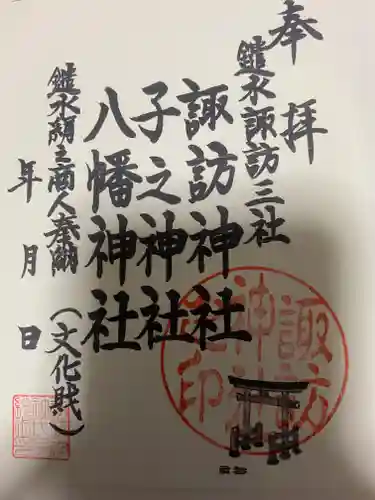 奉拝
鑓水諏訪三社
諏訪神社
子之神社
八幡神社
鑓水絹之商人奉納（文化財）
年月日
諏訪
神社
印